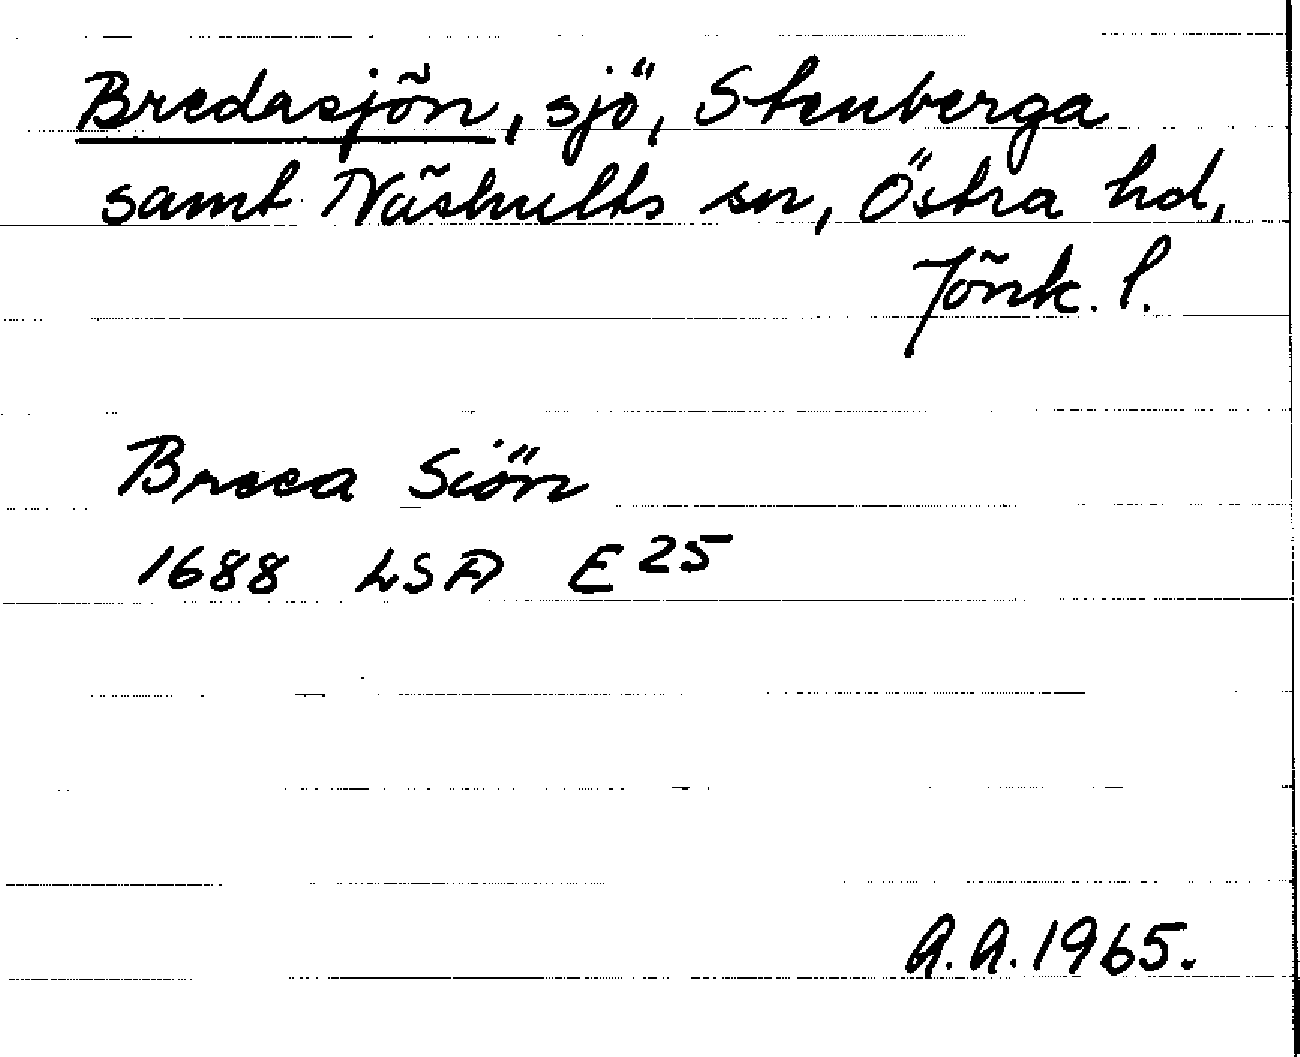 Bredasjön, sjö, Stenberga
samt Näshults sn, Östra hd,
Jönk. l.
Breea Siön
1688 LSA E25
A.A. 1965.